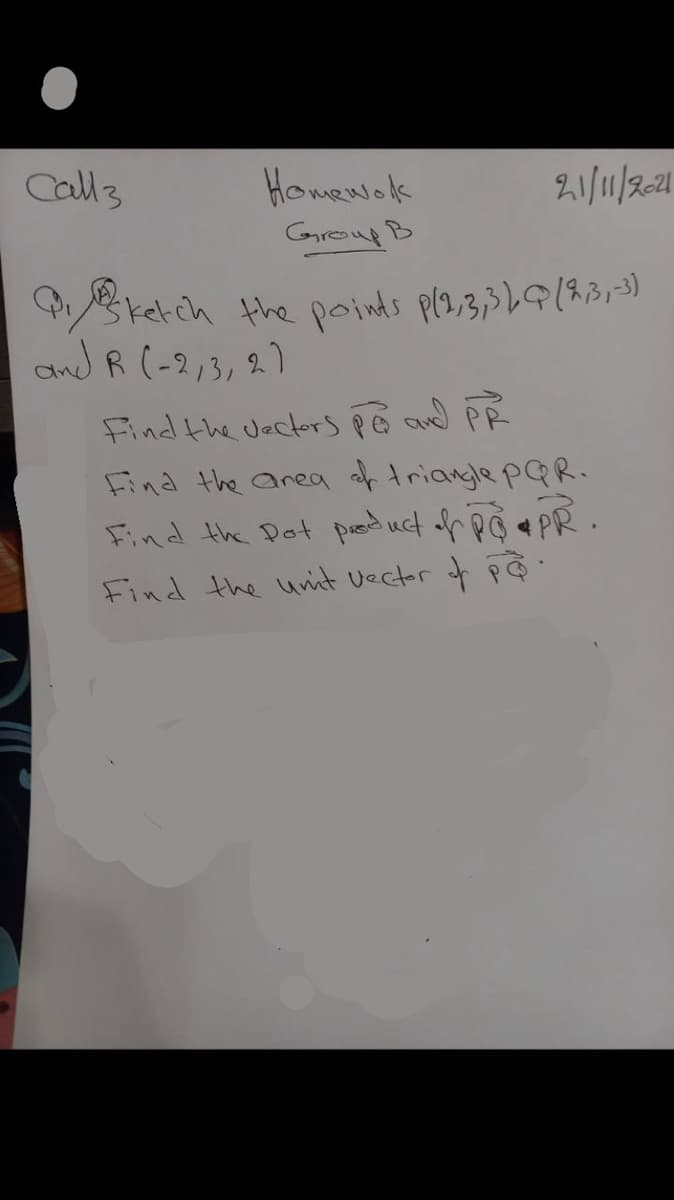 Call3 Homewok 21/11/2021
Group B
Q1/ (A) Sketch the points P(2,3,3), Q(2,3,-3)
and R (-2,3,2)
Find the vectors PQ and PR
Find the area of triangle PQR.
Find the Dot product of PQ • PR.
Find the unit vector of PQ.